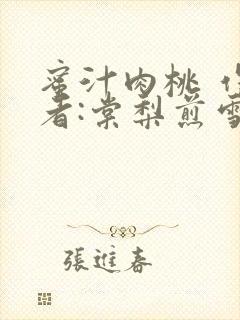 蜜汁肉桃 作
者:棠梨煎雪
張進春